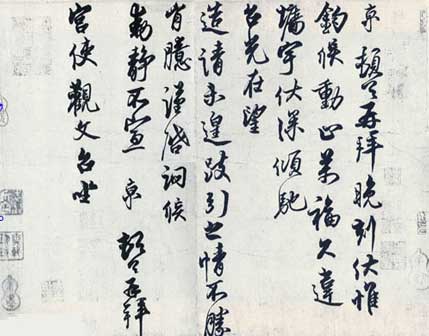 京 頓首再拜 晚刻伏惟
鈞候動止萬福 久違
牆宇 伏深傾馳
台光在望
造請未遑 跂引之情 不勝
胷臆 謹啓詞候
動靜 不宣 京 頓首再拜
宮使觀文台坐